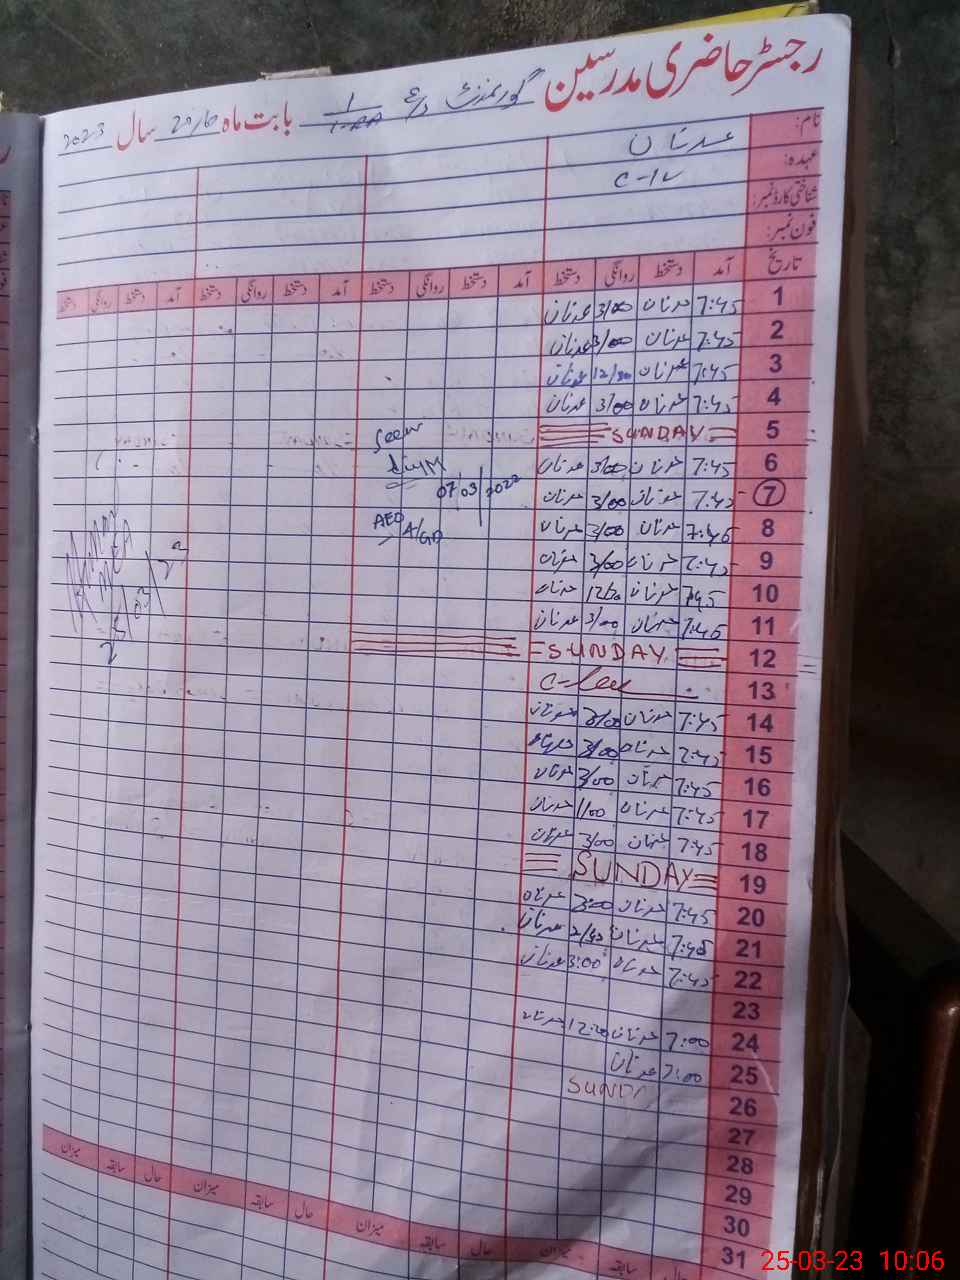 رجسٹر حاضری مدرسین گورنمنٹ 1 بابت ماہ مارچ 20 سال 2023
نام: عدنان
عہدہ: C-IV
شناختی کارڈ نمبر:
فون نمبر:
تاریخ آمد دستخط روانگی دستخط آمد دستخط روانگی دستخط آمد دستخط روانگی دستخط آمد دستخط روانگی دستخط
1 7:45 عدنان 3/00 عدنان
2 7:45 عدنان 3/00 عدنان
3 7:45 عدنان 12/30 عدنان
4 7:45 عدنان 3/00 عدنان
5 SUNDAY
Seen
6 7:45 عدنان 3/00 عدنان
7 7:45 عدنان 3/00 عدنان
07/03/2022
8 7:45 عدنان 3/00 عدنان
AEO
9 7:45 عدنان 3/00 عدنان
10 7:45 عدنان عدنان
11 7:45 عدنان 3/00 عدنان
12 SUNDAY
13
14 7:45 عدنان 3/00 عدنان
15 7:45 عدنان 3/00 عدنان
16 7:45 عدنان 3/00 عدنان
17 7:45 عدنان 1/00 عدنان
18 7:45 عدنان 3/00 عدنان
19 SUNDAY
20 7:45 عدنان 3:00 عدنان
21 7:45 عدنان عدنان
22 7:45 عدنان 3:00 عدنان
23
24 7:00 عدنان 12:00 عدنان
25 7:00 عدنان
26 SUNDA
27
28
29
30
31
حال سابقہ میزان حال سابقہ میزان حال سابقہ میزان حال سابقہ میزان
25-03-23 10:06